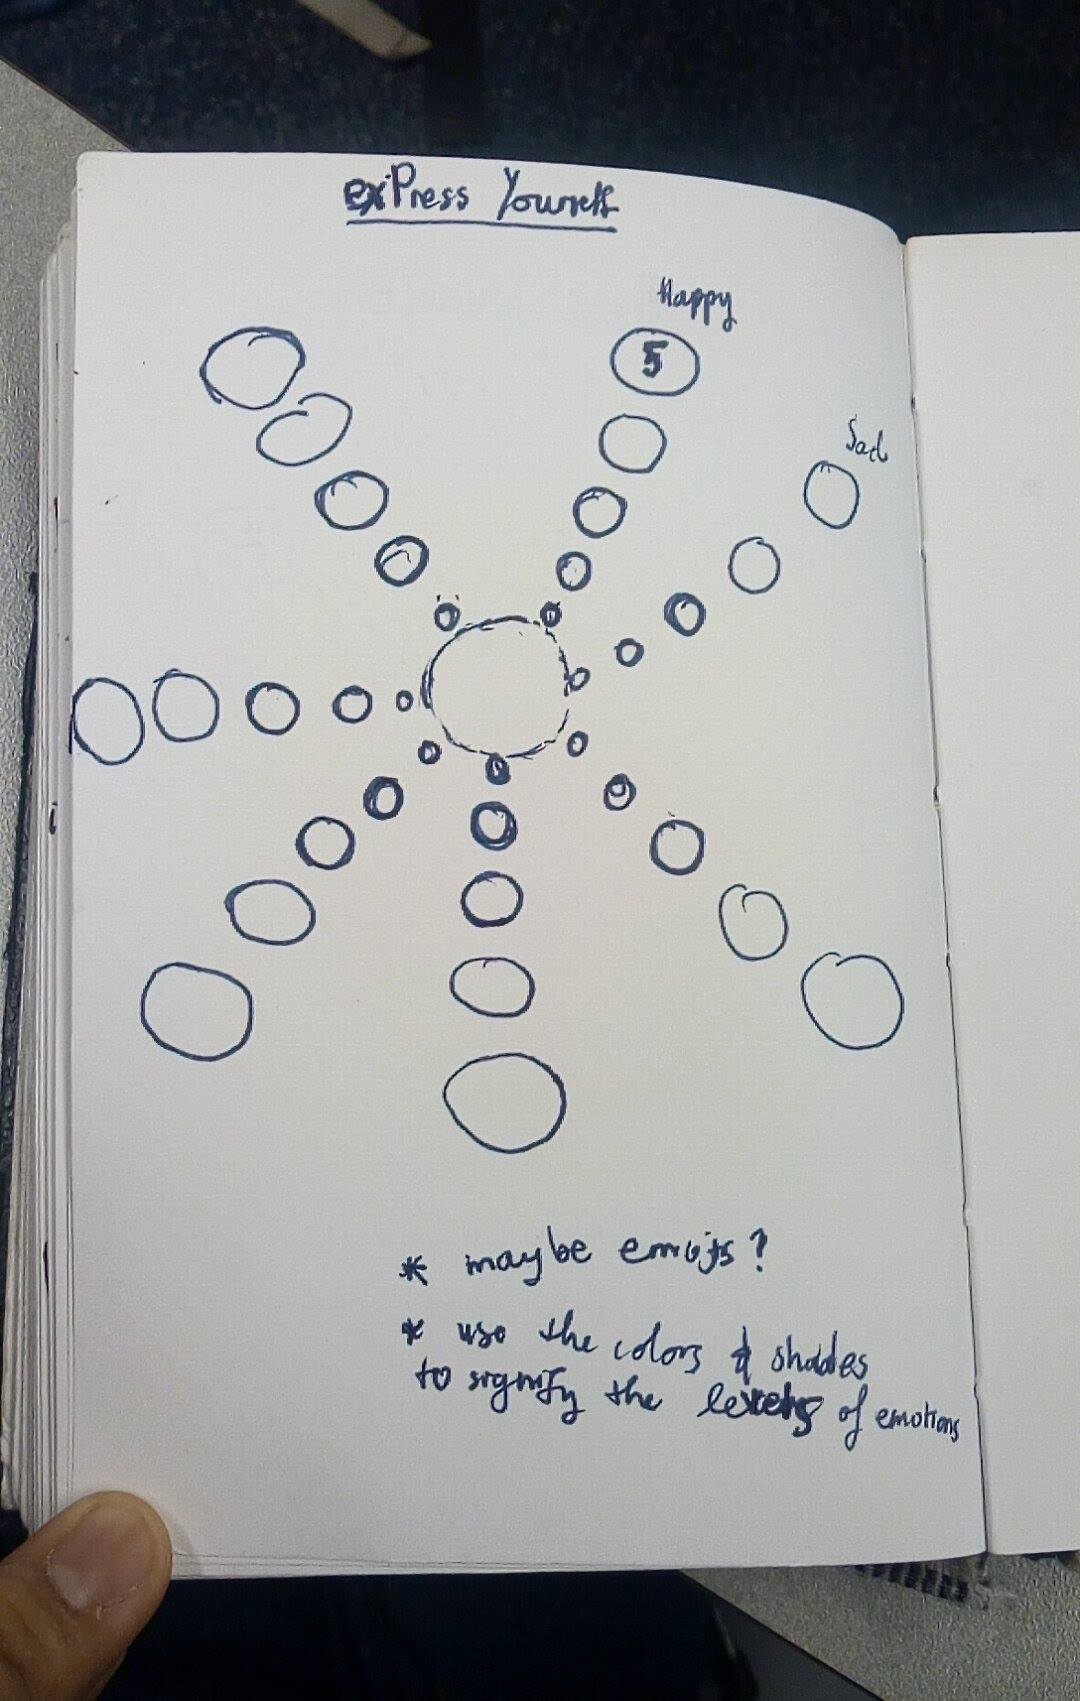 exPress Yourself
Happy
5
Sad
* maybe emojis?
* use the colors & shades
to signify the levels of emotions